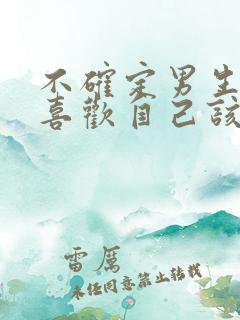 不確定男生
喜歡自己該
雷厲
未經同意禁止轉載